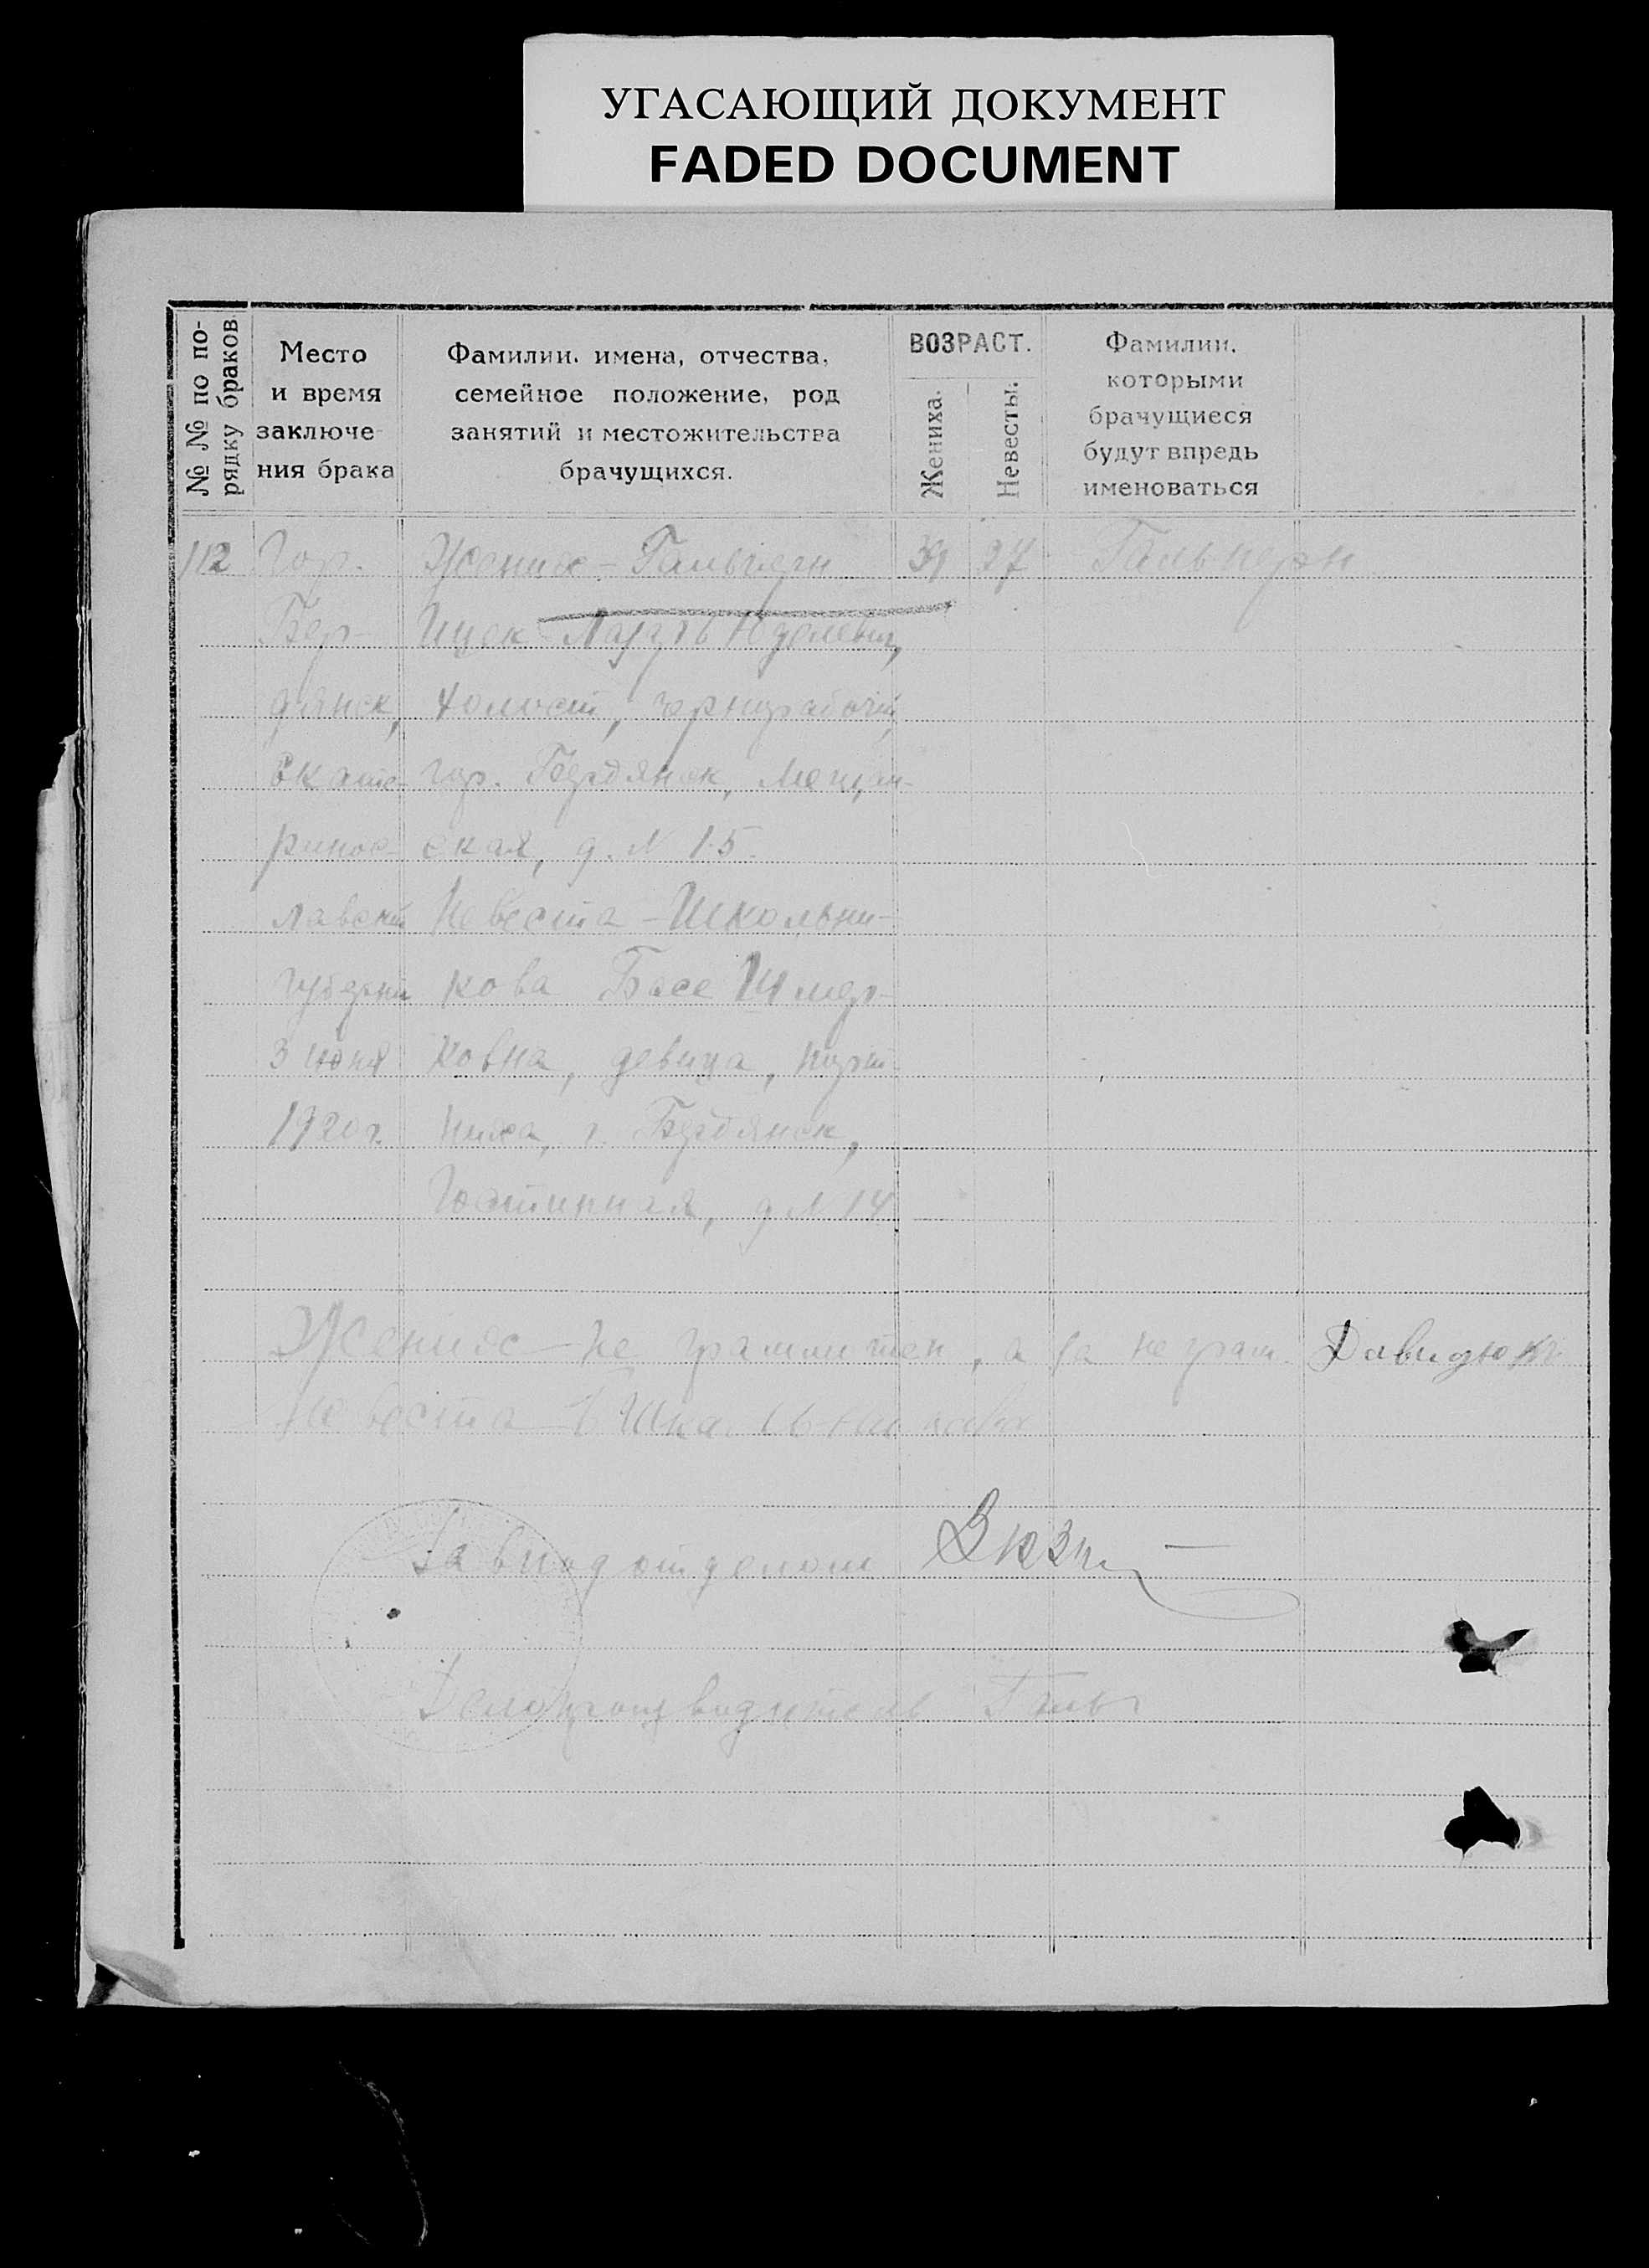 УГАСАЮЩИЙ ДОКУМЕНТ
FADED DOCUMENT
№ № по по-
рядку браков.
Место
и время
заключе-
ния брака
Фамилии, имена, отчества,
семейное положение, род
занятий и местожительства
брачущихся.
ВОЗРАСТ.
Жениха.
Невесты.
Фамилии,
которыми
брачущиеся
будут впредь
именоваться
112
Гор.
Бер-
дянск,
Екате-
ринос-
лавской
губернии
3 июня
1920 г.
Жених - Гальперн
Ицек - Юделевич,
холост, чернорабочий,
гор. Бердянск, Мещан-
ская, д. № 15.
Невеста - Школьни-
кова Басе Шмер-
ковна, девица, порт-
ниха, г. Бердянск,
Гостинная, д № 14
27
Гальперн
Жених - не грамотен, а за не грам. Давидюк
Невеста Б Школьникова
Завподотделом
Делопроизводитель